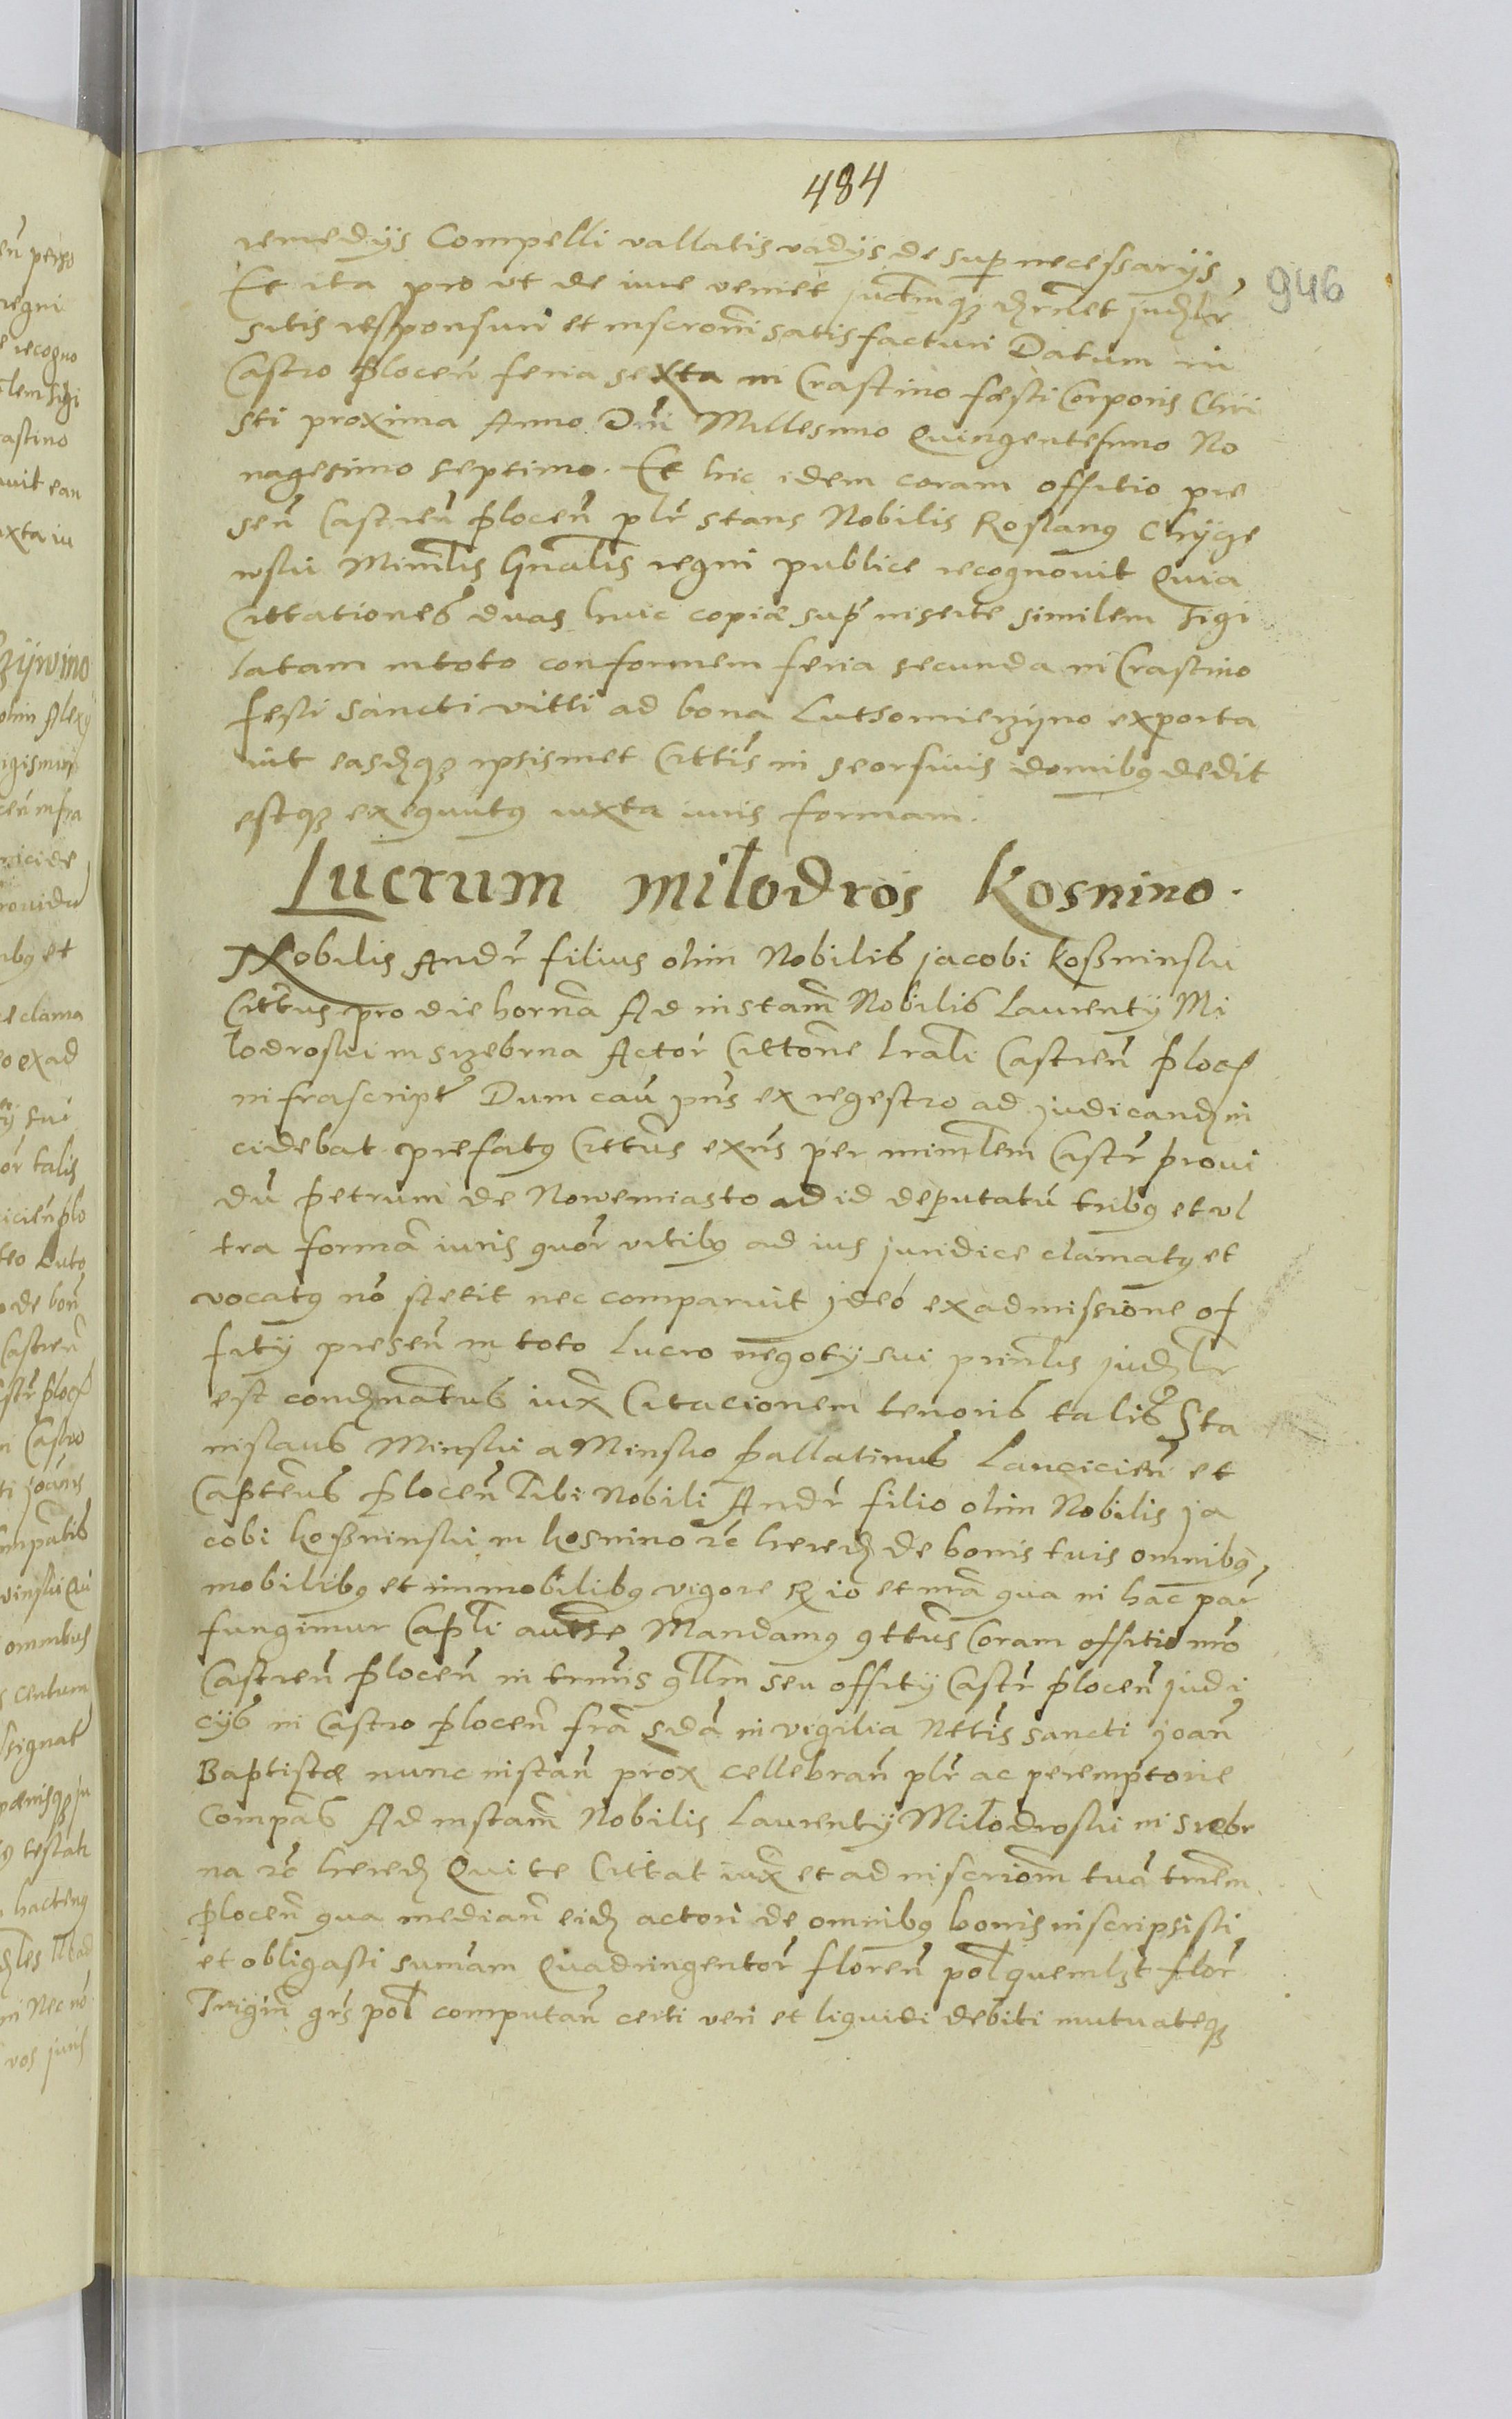 484
946
remedijs Compelli vallatis vadijs de sup necessarijs
Et ita pro vt de iure veniet juctimqȝ dʒrnet judʒlr
sitis responsuri et inscroni satisfacturi Datum in
Castro plocen feria sexta in Crastino festi Corporis Chri
sti proxima Anno Dni Millesimo Quingentesimo No
nagesimo septimo. Et hic idem coram offitio pre
sen Castren plocen plr stans Nobilis Roslanꝯ Chijcze
wski Minrlis Gnalis regni publice recognouit Quia
Cittationes duas huic copiæ sup inserte similem sigi
latam in toto conformem feria secunda in Crastino
festi sancti vitti ad bona Luthomierzijno exporta
uit easdʒqȝ ipsismet Cittis in seorsiuis domibꝯ dedit
estqȝ exequutꝯ iuxta iuris formam.
Lucrum Milodros Kosnino.
Nobilis Andr filius olim Nobilis jacobi Koßninski
Cittus pro die horna Ad instam Nobilis Laurentij Mi
lodroski in srzebrna Actor Cittone lrali Castren ploc
infrascript Dum cau pns ex regestro ad judicandʒ in
cidebat prefatꝯ Cittus exns per minrlem Castr proui
du petrum de Nowemiasto ad id deputatu tribꝯ et vl
tra forma iuris quor vitibꝯ ad ius juridice clamatꝯ et
vocatꝯ no stetit nec comparuit jdeo ex admissione of
fitij presen in toto lucro negotij sui prinlis judʒlr
est condʒnatus iux Citacionem tenoris talis Sta
nislaus Minski a Minsko pallatinus Lancicien et
Capteus plocen Tibi Nobili Andr filio olim Nobilis ja
cobi Koßninski in Kosnino rc heredʒ de bonis tuis omnibꝯ
mobilibꝯ et immobilibꝯ vigore R io et ma qua in hac par
fungimur Capli authe Mandamꝯ qttus Coram offitio nro
Castren plocen in trmis qllm seu offitij Castr plocen judi
cijs in Castro plocen fra sda in vigilia Nttis sancti joan
Baptistæ nunc instan prox cellebran plr ac peremptorie
Compas Ad instam Nobilis Laurentij Milodroski in srebr
na rc heredʒ Qui te Cittat iux et ad inscriom tua trrem
plocen qua median eidʒ actori de omnibꝯ bonis inscripsisti
et obligasti sumam Quadringentor floren pol quemlʒt flor
Trigin grs pol computan certi veri et liquidi debiti mutuateqȝ